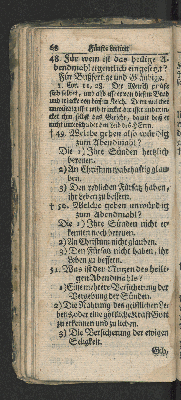 68 Fünffte
48. Für wem ist das heilige A-
bendmahl eigentlich eingesetzt?
Für Bußfertige und Gläubige.
1. Cor. 11, 28. Der Mensch prüfe
sich selbst, und also esse er von diesem Brod
und trincke von diesem Kelch. Denn welcher
unwürdig isset und trincket, der isset und trin-
cket ihm selber das Gericht, damit daß er
nicht unterscheidet den Leib des HErrn.
† 49. Welche gehen also würdig
zum Abendmahl?
Die 1) Ihre Sünden hertzlich
bereuen.
2) An Christum wahrhafftig glau-
ben.
3) Den redlichen Fürsatz haben,
ihr Leben zu bessern.
† 50. Welche gehen unwürdig
zum Abendmahl?
Die 1) Ihre Sünden nicht er-
kennen noch bereuen.
2) An Christum nicht glauben.
3) Den Fürsatz nicht haben, ihr
Leben zu bessern.
51. Was ist der Nutzen des heili-
gen Abendmahls?
1) Eine mehrere Versicherung der
Vergebung der Sünden.
2) Die Nahrung des geistlichen Le-
bens, oder eine göttliche Krafft Gott
zu erkennen und zu lieben.
3) Die Versicherung der ewigen
Seligkeit.